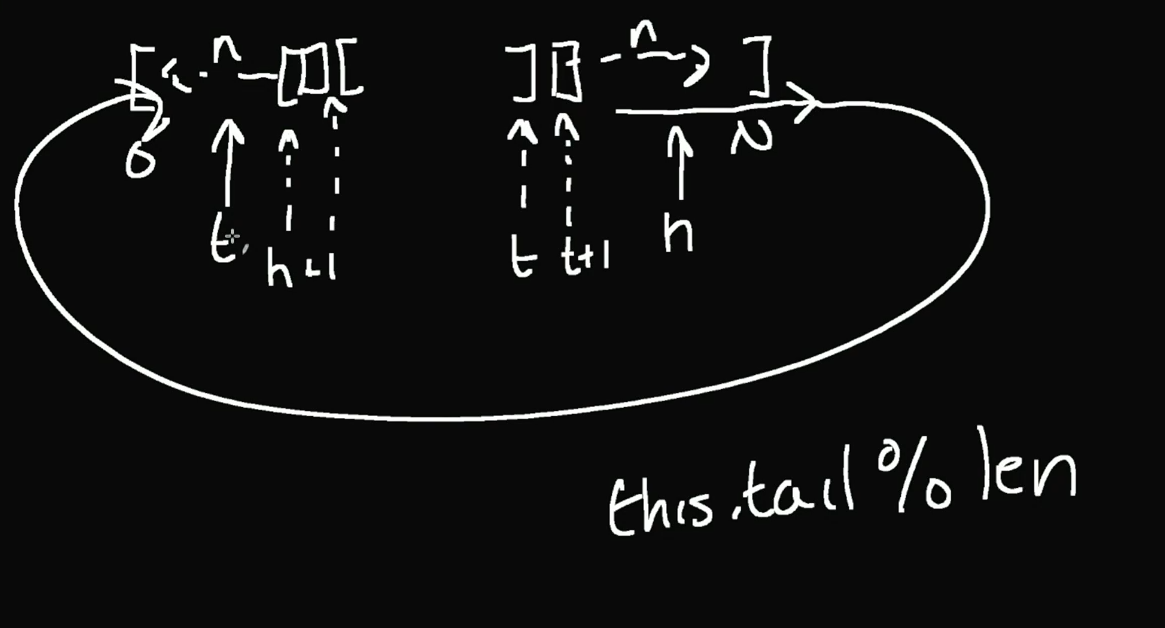 [ <- n - [ [] [ ] [] - n -> ]
0 N
t h+1 t t+1 h
this.tail % len